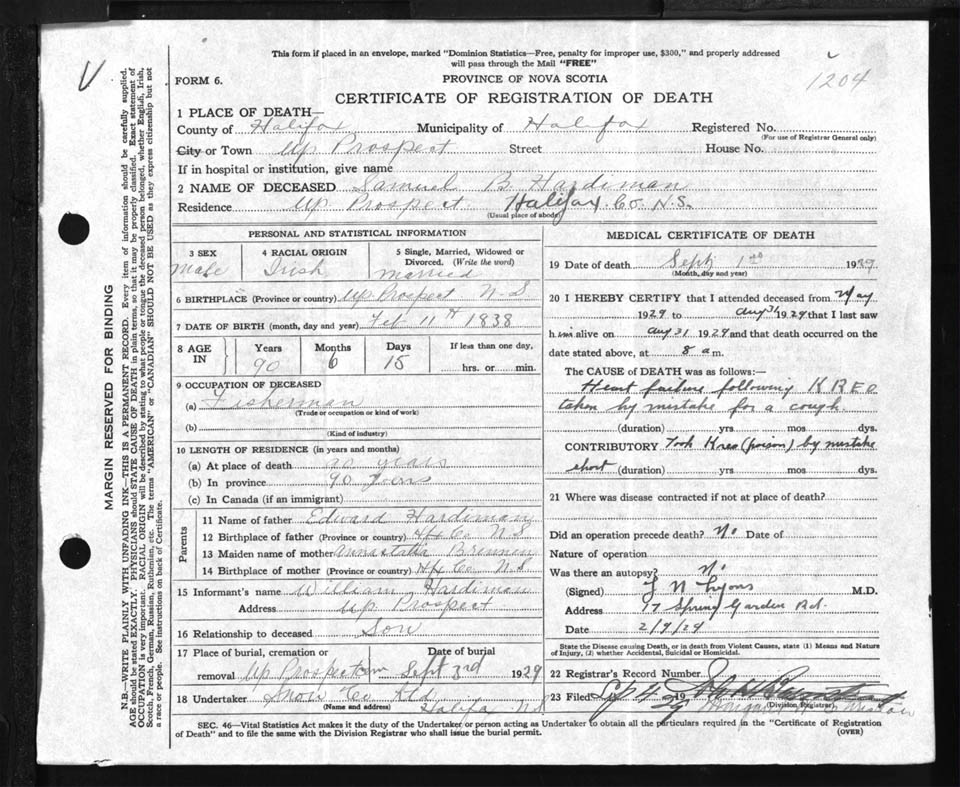 This form if placed in an envelope, marked "Dominion Statistics—Free, penalty for improper use, $300," and properly addressed
will pass through the Mail "FREE"
V
1204
FORM 6.
PROVINCE OF NOVA SCOTIA
CERTIFICATE OF REGISTRATION OF DEATH
1 PLACE OF DEATH—
County of Halifax Municipality of Halifax Registered No.
(For use of Registrar General only)
City or Town Up Prospect Street House No.
If in hospital or institution, give name
2 NAME OF DECEASED Samuel B Hardiman
Residence Up Prospect Halifax Co N.S.
(Usual place of abode)
PERSONAL AND STATISTICAL INFORMATION
3 SEX
Male
4 RACIAL ORIGIN
Irish
5 Single, Married, Widowed or
Divorced. (Write the word)
Married
6 BIRTHPLACE (Province or country) Up Prospect N-S
7 DATE OF BIRTH (month, day and year) Feb 11th 1838
8 AGE IN
Years Months Days If less than one day,
90 6 15 hrs. or min.
9 OCCUPATION OF DECEASED
(a) Fisherman
(Trade or occupation or kind of work)
(b)
(Kind of industry)
10 LENGTH OF RESIDENCE (in years and months)
(a) At place of death 90 years
(b) In province 90 Years
(c) In Canada (if an immigrant)
Parents
11 Name of father Edward Hardiman
12 Birthplace of father (Province or country) Hfx Co N S
13 Maiden name of mother Annastatia Brennen
14 Birthplace of mother (Province or country) Hfx Co N S
15 Informant's name William Hardiman
Address Up Prospect
16 Relationship to deceased Son
17 Place of burial, cremation or Date of burial
removal Up Prospect cem Sept 3rd 1929
18 Undertaker Snow Co Ltd
(Name and address) Halifax N.S
MEDICAL CERTIFICATE OF DEATH
19 Date of death Sept 1st 1929
(Month, day and year)
20 I HEREBY CERTIFY that I attended deceased from May
1929 to Aug 31 1929 that I last saw
him alive on Aug 31 1929 and that death occurred on the
date stated above, at 8 am.
The CAUSE of DEATH was as follows:—
Heart failure following KREO
taken by mistake for a cough.
(duration) yrs mos dys.
CONTRIBUTORY Took Kreo (poison) by mistake
short (duration) yrs mos dys.
21 Where was disease contracted if not at place of death?
Did an operation precede death? No Date of
Nature of operation
Was there an autopsy? No
(Signed) J N Lyons M.D.
Address 17 Spring Garden Rd.
Date 2/9/29
State the Disease causing Death, or in Death from Violent Causes, state (1) Means and Nature
of Injury, (2) whether Accidental, Suicidal or Homicidal.
22 Registrar's Record Number
23 Filed 19
(Division Registrar)
SEC. 46—Vital Statistics Act makes it the duty of the Undertaker or person acting as Undertaker to obtain all the particulars required in the "Certificate of Registration
of Death" and to file the same with the Division Registrar who shall issue the burial permit.
(OVER)
MARGIN RESERVED FOR BINDING
N.B.—WRITE PLAINLY WITH UNFADING INK—THIS IS A PERMANENT RECORD. Every item of information should be carefully supplied.
AGE should be stated EXACTLY. PHYSICIANS should STATE CAUSE OF DEATH in plain terms, so that it may be properly classified. Exact statement of
OCCUPATION is very important. RACIAL ORIGIN will be described by stating to what people or tongue the deceased person belonged, whether English, Irish,
Scotch, French, German, Russian, Ruthenian, etc. The terms "AMERICAN" or "CANADIAN" SHOULD NOT BE USED as they express citizenship but not
a race or people. See instructions on back of Certificate.